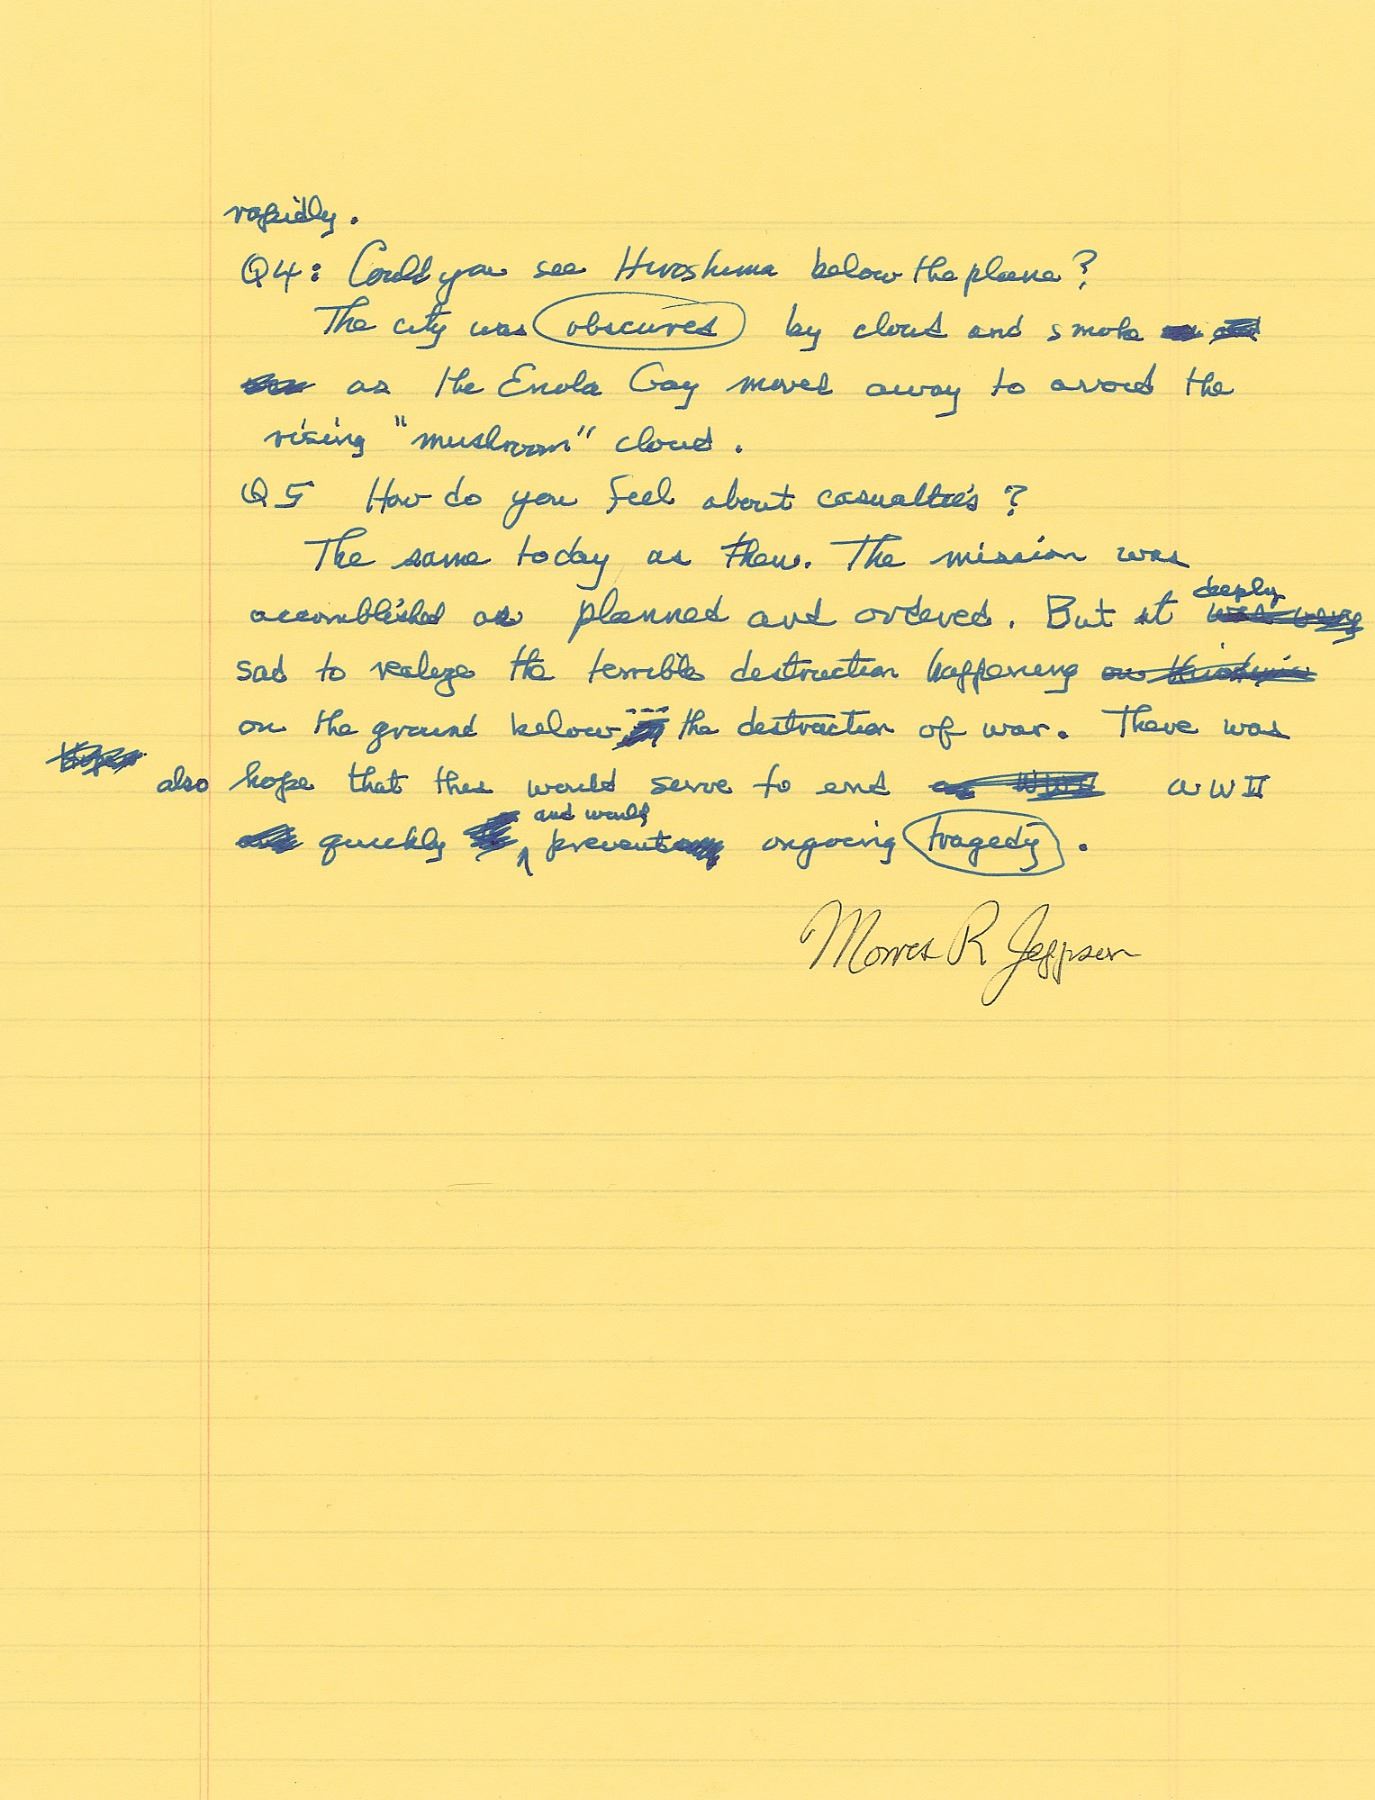 rapidly.
Q4: Could you see Hiroshima below the plane?
The city was obscured by cloud and smoke
as the Enola Gay moved away to avoid the
rising "mushroom" cloud.
Q5 How do you feel about casualties?
The same today as then. The mission was
deeply
accomblished as planned and ordered. But it
sad to realize the terrible destruction happening
on the ground below --- the destruction of war. There was
also hope that this would serve to end WWII
and would
quickly prevent ongoing tragedy.
Morris R Jeppson